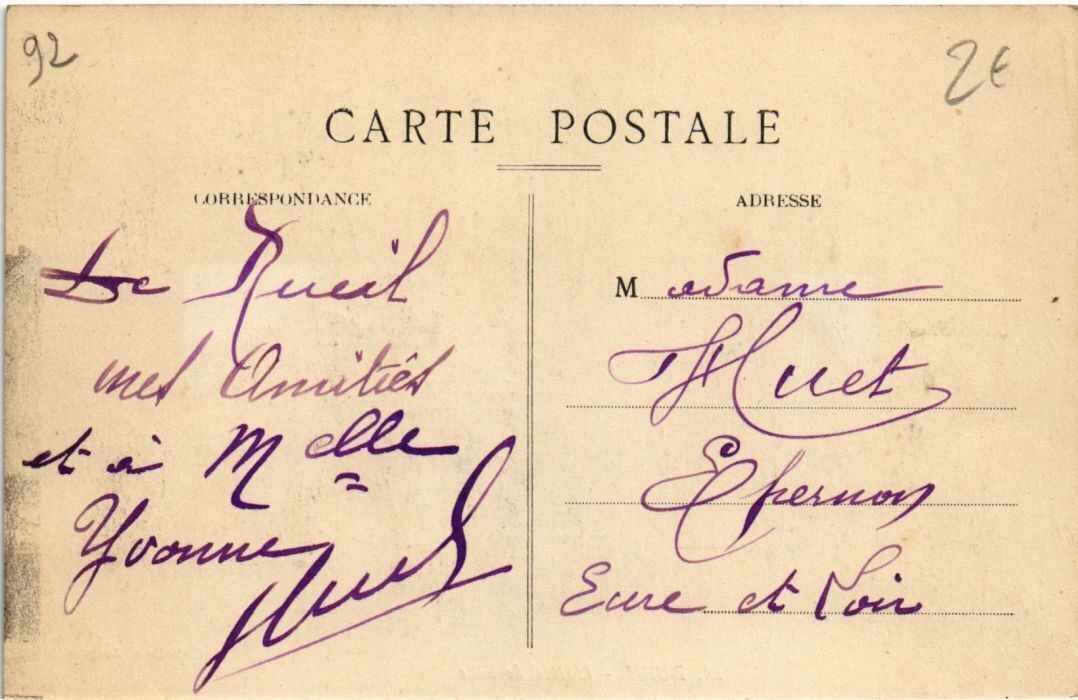 92
2€
CARTE POSTALE
CORRESPONDANCE
De Rueil
mes Amitiés
et à Melle
Yvonne
ADRESSE
Madame
Huet
Epernon
Eure et Loir